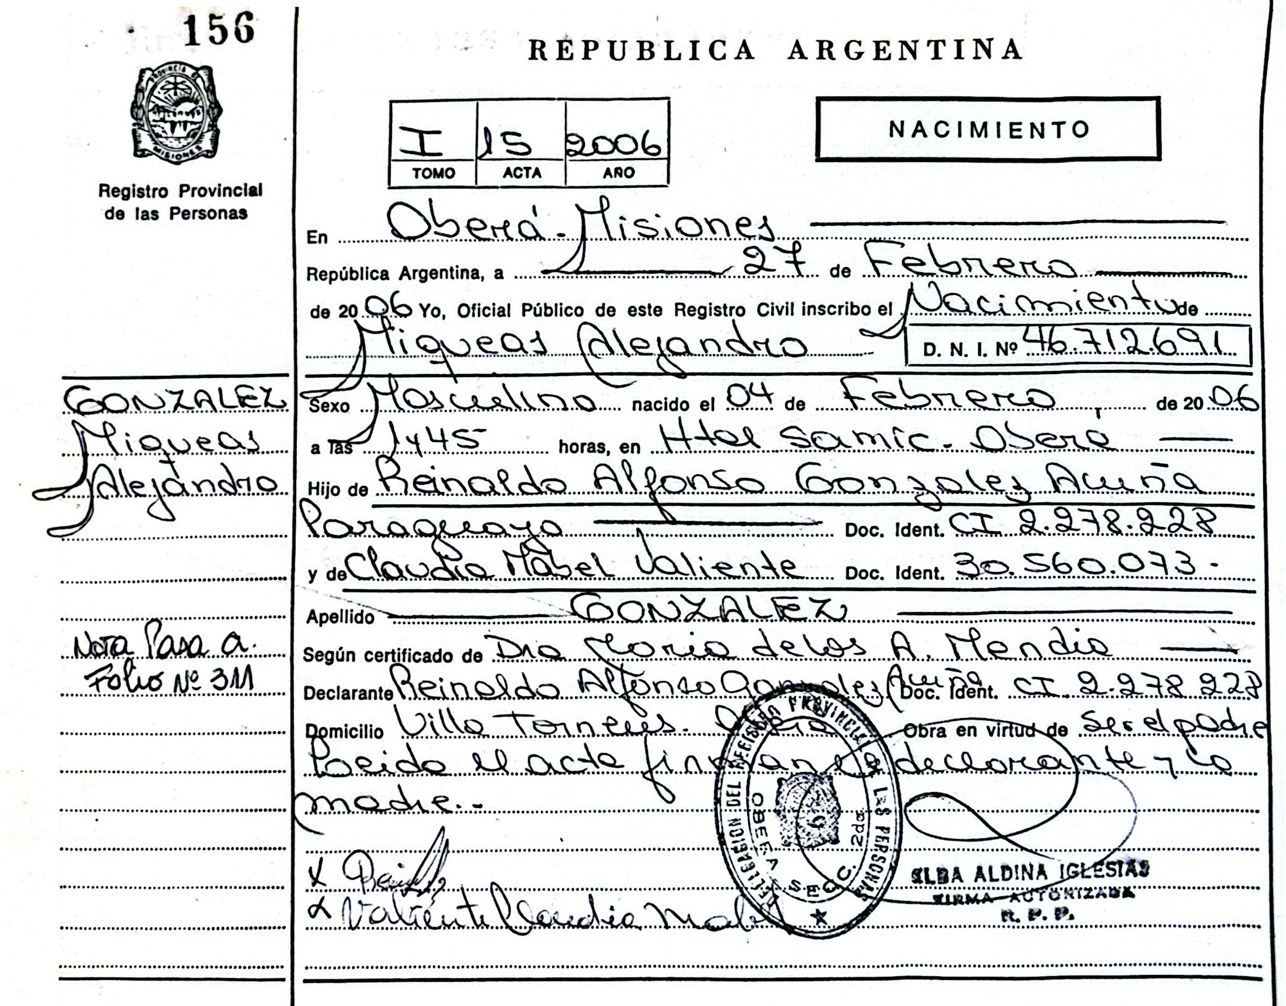 156
REPUBLICA ARGENTINA
PROVINCIA DE MISIONES
Registro Provincial
de las Personas
I 15 2006
TOMO ACTA AÑO
NACIMIENTO
En Oberá - Misiones
República Argentina, a 27 de Febrero
de 2006 Yo, Oficial Público de este Registro Civil inscribo el Nacimiento de
Miqueas Alejandro D. N. I. Nº 46.712.691
GONZALEZ
Miqueas
Alejandro
Sexo Masculino nacido el 04 de Febrero de 2006
a las 1445 horas, en Htal Samic - Oberá
Hijo de Reinaldo Alfonso Gonzales Acuña
Paraguayo Doc. Ident. CI 2.278.228
y de Claudia Mabel Valiente Doc. Ident. 30.560.073.-
Apellido GONZALEZ
Nota Pasa a
Folio Nº 311
Según certificado de Dra Maria de los A. Mendia
Declarante Reinaldo Alfonso Gonzales Acuña Doc. Ident. CI 2.278 228
Domicilio Villa Obra en virtud de ser el padre
Leido el acta firman el declarante y la
madre.-
x
x Valiente Claudia Mabel
DELEGACION DEL REGISTRO PROVINCIAL DE LAS PERSONAS
OBERA SECC. 2da.
ELBA ALDINA IGLESIAS
FIRMA AUTORIZADA
R. P. P.